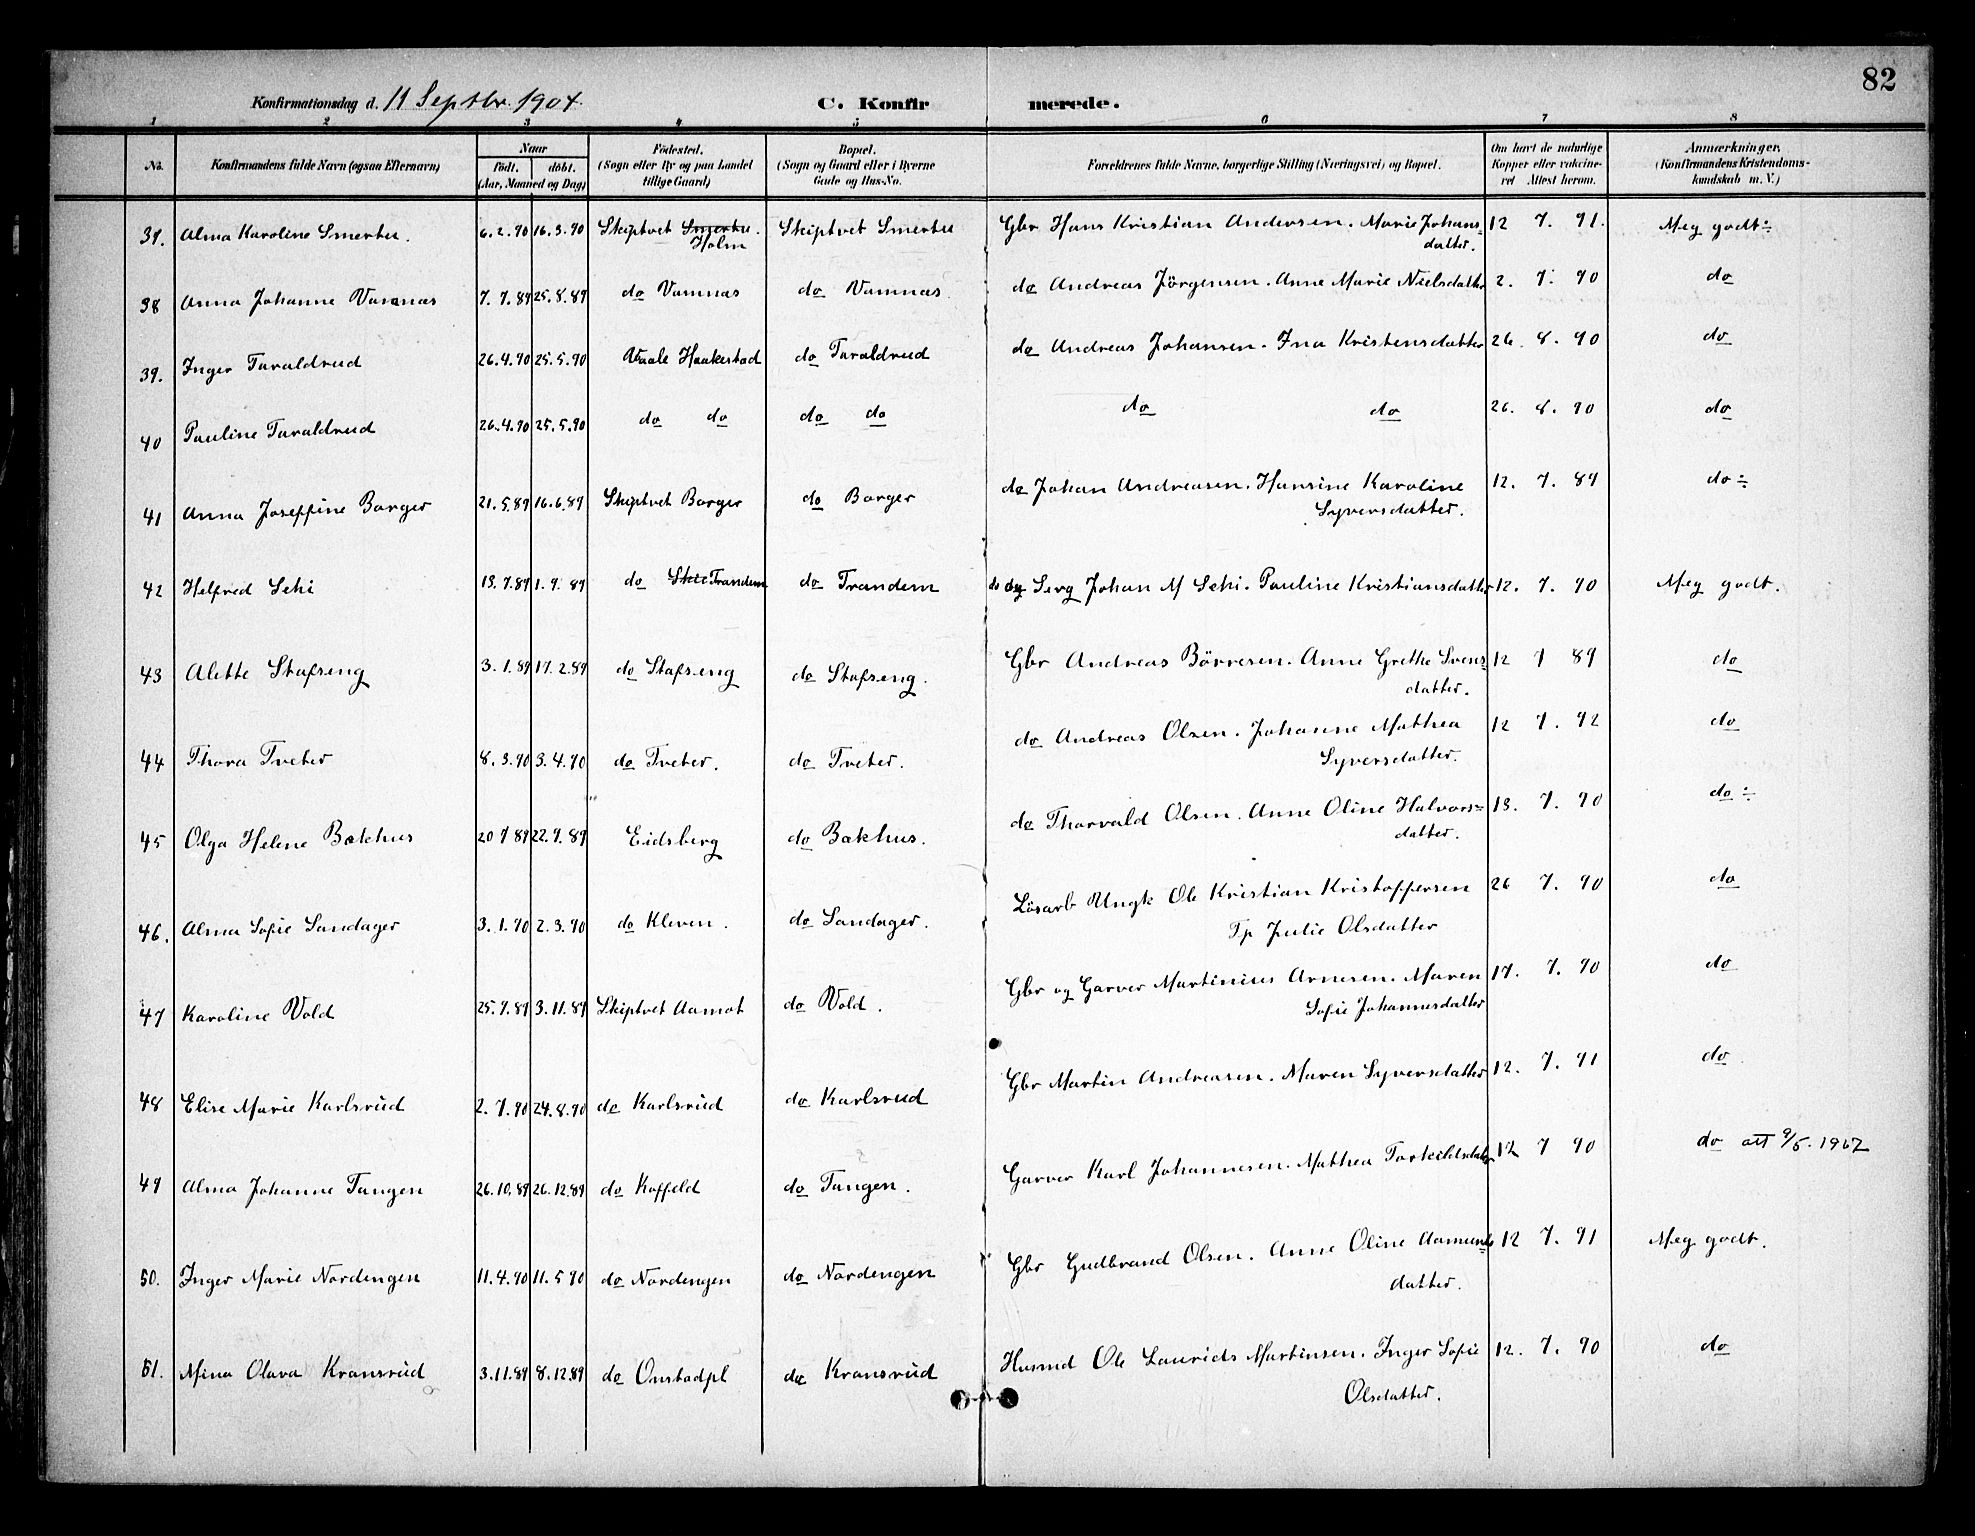 82
Konfirmationsdag d. 11 Septbr. 1904. C. Konfirmerede.
1 2 3 4 5 6 7 8
No. Konfirmandens fulde Navn (ogsaa Efternavn) Naar födt. döbt. (Aar, Maaned og Dag) Födested. (Sogn eller By og paa Landet tillige Gaard) Bopæl. (Sogn og Gaard eller i Byerne Gade og Hus-No. Forældrenes fulde Navne, borgerlige Stilling (Næringsvei) og Bopæl. Om havt de naturlige Kopper eller vakcineret Attest herom. Anmærkninger. (Konfirmandens Kristendomskundskab m. V.)
37. Alma Karoline Smertu. 6.2.90 16.3.90 Skiptvet Smertu. Holm Skiptvet Smertu Gbr Hans Kristian Andersen. Marie Johans= datter. 12 7. 91. Meg godt÷
38 Anna Johanne Vamnæs 7.7.89 25.8.89 do Vamnæs do Vamnæs. do Andreas Jörgensen. Anne Marie Nielsdatter 2. 7. 90 do
39. Inger Taraldrud 26.4.90 25.5.90 Vaale Haakestad do Taraldrud do Andreas Johansen. Ina Kristensdatter 26. 8. 90 do
40 Pauline Taraldrud 26.4.90 25.5.90 do do do do do do 26. 8. 90 do
41 Anna Joseffine Borger 21.5.89 16.6.89 Skiptvet Borger do Borger do Johan Andreasen. Hansine Karoline Syversdatter. 12. 7. 89 do÷
42 Helfred Schi 13.7.89 1.9.89 do Trandem do Trandem do og Serg Johan M Schi. Pauline Kristiansdatter 12. 7. 90 Meg godt.
43 Alette Stafseng 3.1.89 17.2.89 do Stafseng do Stafseng. Gbr Andreas Börresen. Anne Grethe Svens= datter. 12 7 89 do
44 Thora Tveter 8.3.90 3.4.90 do Tveter. do Tveter. do Andreas Olsen. Johanne Mathea Syversdatter. 12 7. 92 do
45 Olga Helene Bækhus 20 7 89 22.9.89 Eidsberg do Bækhus. do Thorvald Olsen. Anne Oline Halvors= datter. 13. 7. 90 do÷
46. Alma Sofie Sandager 3.1.90 2.3.90 do Kleven. do Sandager. Lösarb Ungk Ole Kristian Kristoffersen Tp Julie Olsdatter 26 7. 90 do
47 Karoline Vold 25.9.89 3.11.89 Skiptvet Aamot do Vold. Gbr og Garver Martinius Arnesen. Maren Sofie Johannesdatter 17. 7. 90 do
48 Elise Marie Karlsrud 2.7.90 24.8.90 do Karlsrud do Karlsrud Gbr Martin Andreasen. Maren Syversdatter 12. 7. 91 do.
49 Alma Johanne Tangen 26.10.89 26.12.89 do Koffeld do Tangen. Garver Karl Johannesen. Mathea Torkildsdatter 12 7 90 do att 9/5. 1962
50. Inger Marie Nordengen 11.4.90 11.5.90 do Nordengen do Nordengen Gbr Gudbrand Olsen. Anne Oline Aamunds datter. 12 7. 91 Meg godt.
51. Mina Olava Kransrud 3.11.89 8.12.89 do Onstadpl do Kransrud Husmd Ole Laurids Martinsen. Inger Sofie Olsdatter. 12. 7. 90 do